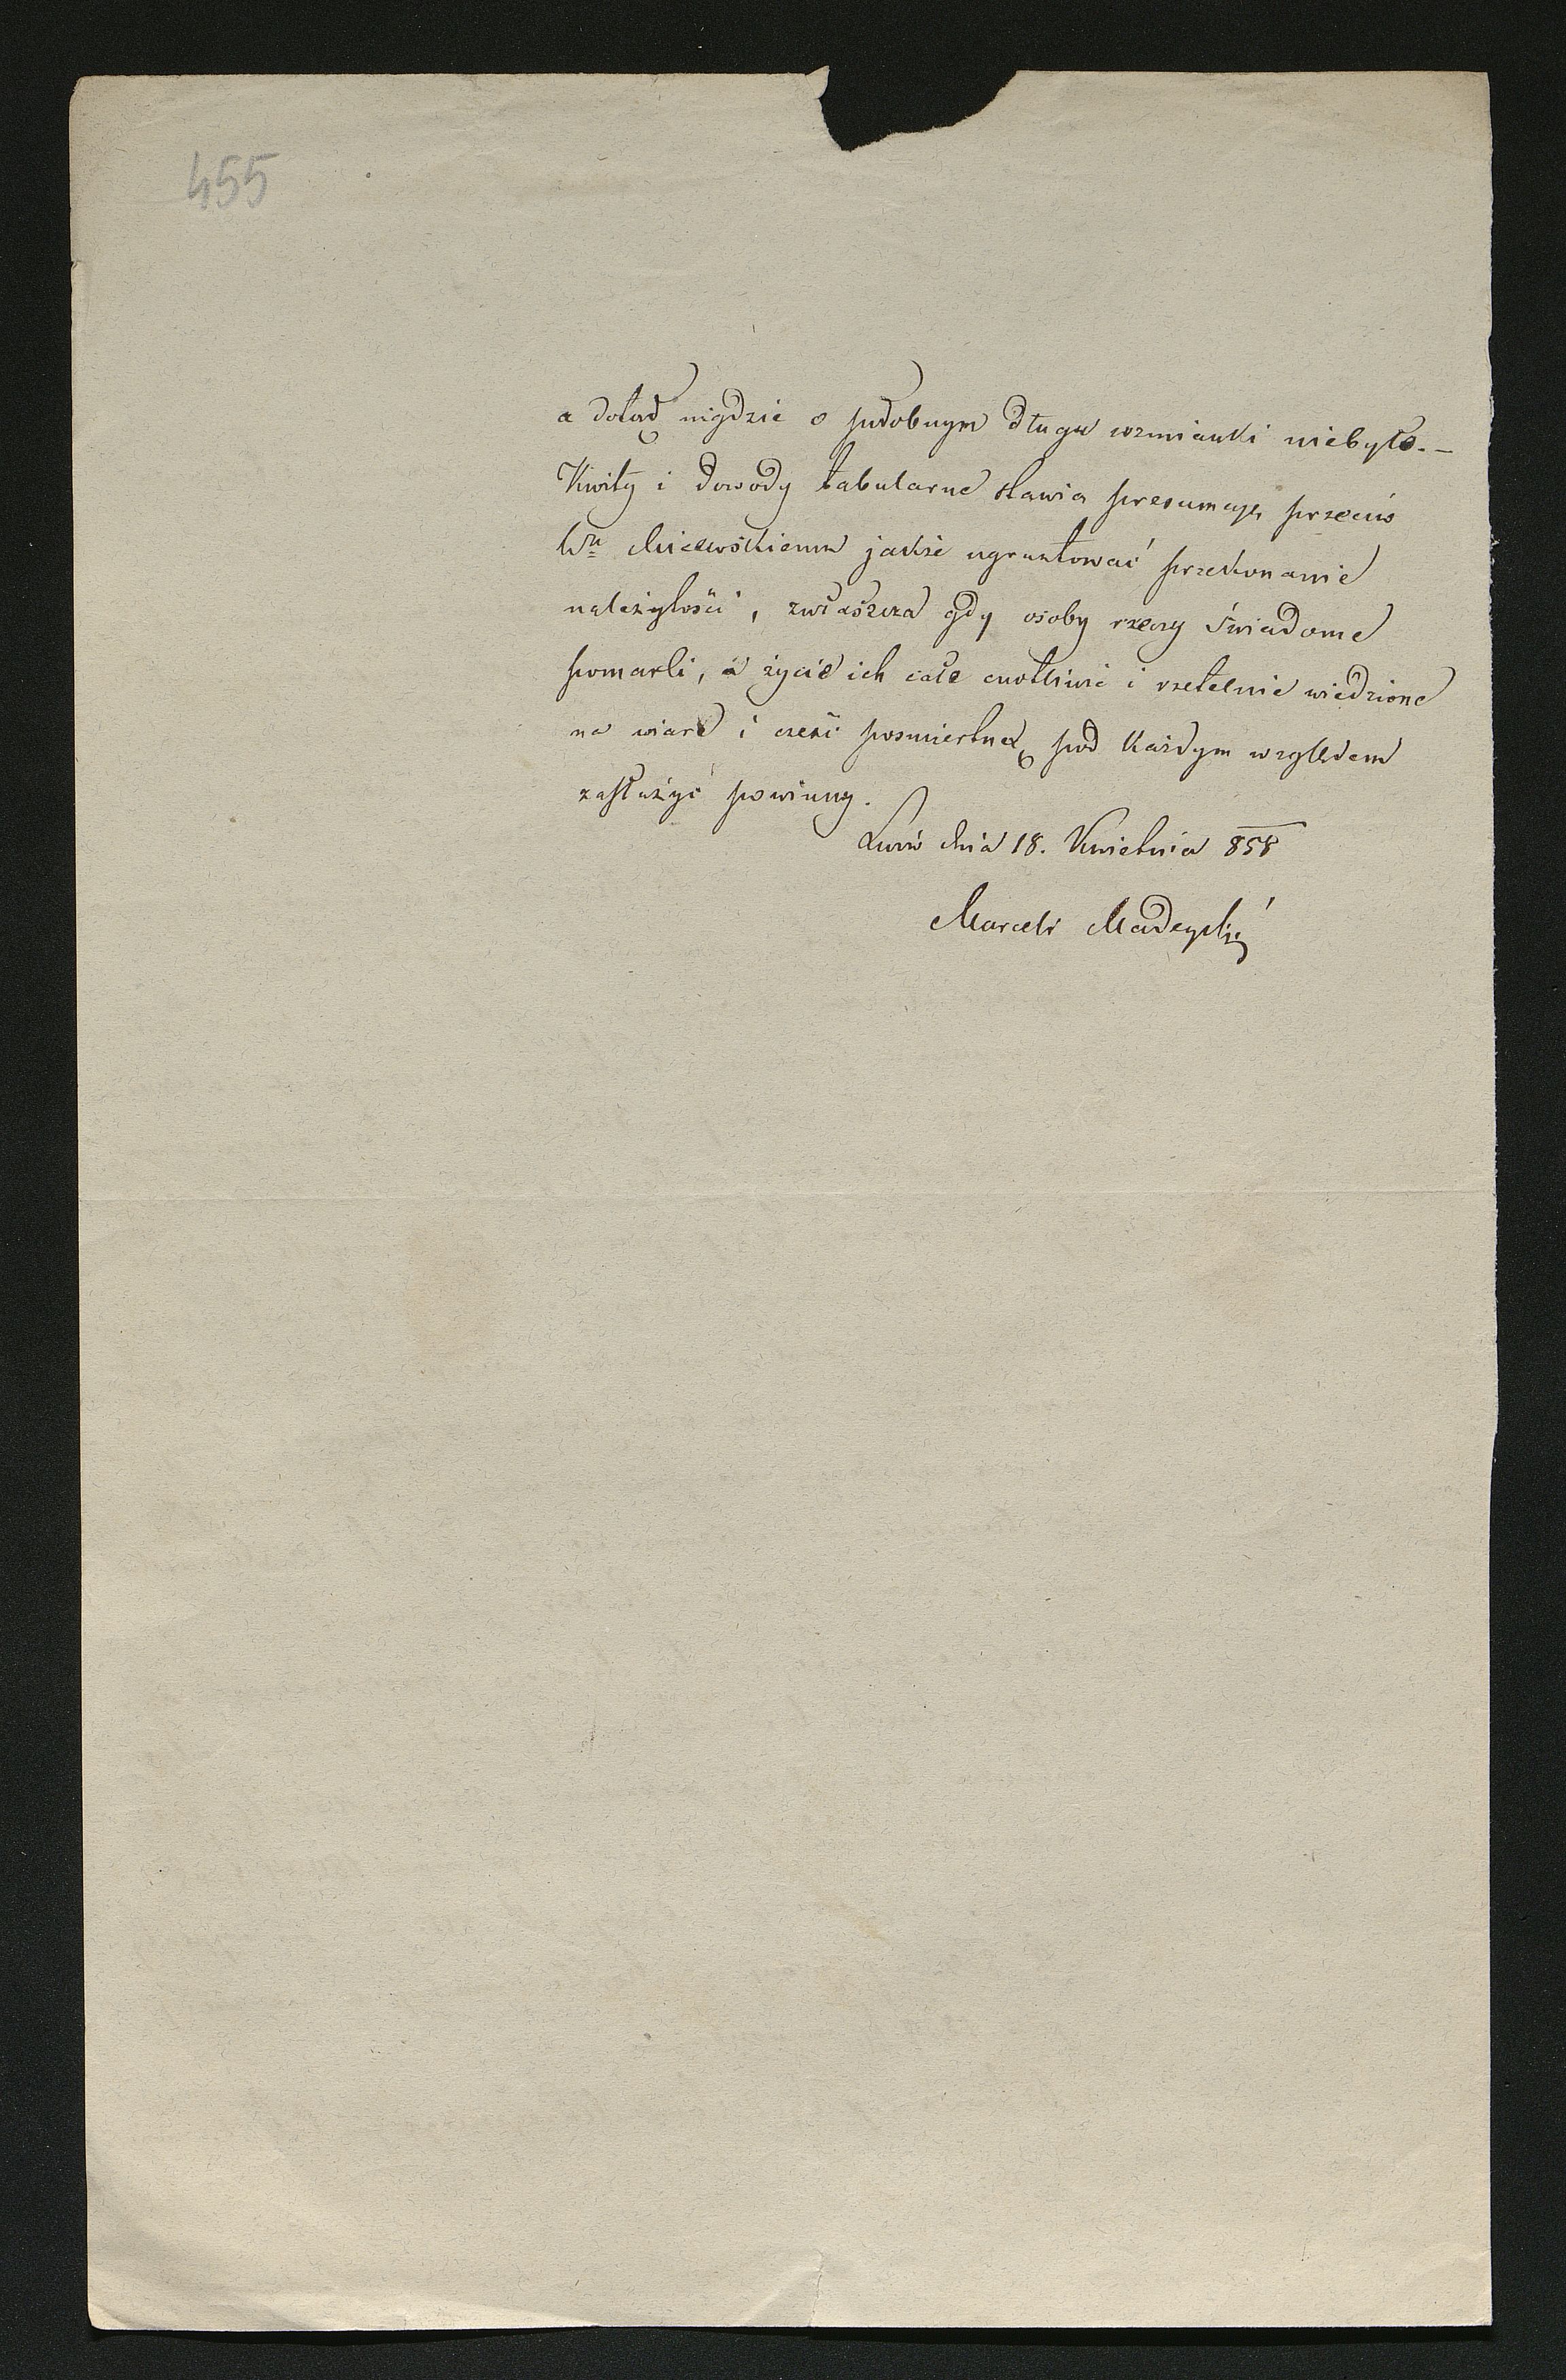 455
a dotąd nigdzie o podobnym długu wzmianki niebyło. –
Kwity i dowody tabularne stawia presumcye przeciw
Wu Milewskiemu jakże ugruntować przekonanie
należytości, zwłaszcza gdy osoby rzeczy świadome
pomarli, a życie ich całe cnotliwie i rzetelnie wiedzione
na wiarę i cześć posmiertną pod każdym względem
zasłużyć powinny.
Lwów dnia 18. Kwietnia 858
Marceli Madeyski